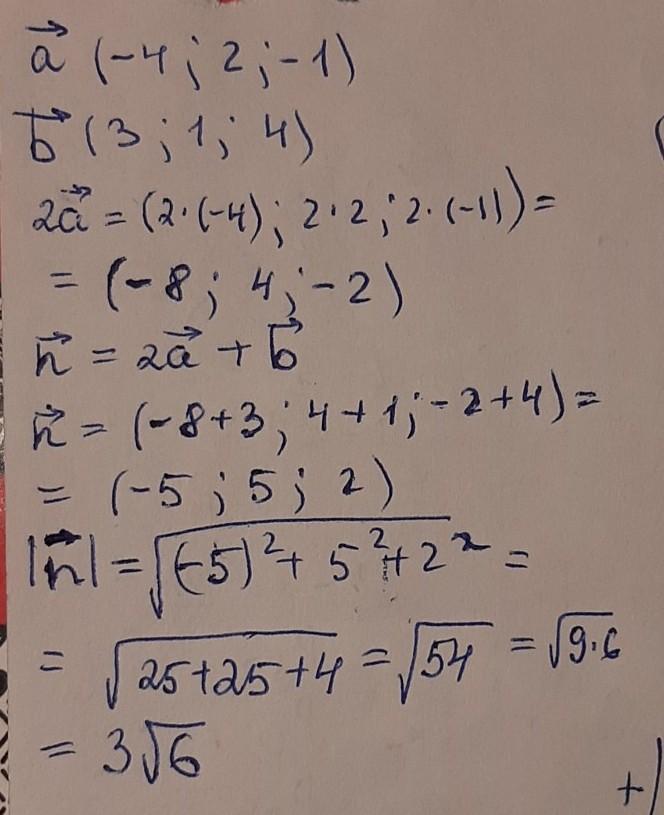 a⃗ (-4; 2; -1)
b⃗ (3; 1; 4)
2a⃗ = (2·(-4); 2·2; 2·(-1)) =
= (-8; 4; -2)
n⃗ = 2a⃗ + b⃗
n⃗ = (-8+3; 4+1; -2+4) =
= (-5; 5; 2)
|n⃗| = √((-5)² + 5² + 2²) =
= √(25+25+4) = √54 = √(9·6)
= 3√6
+